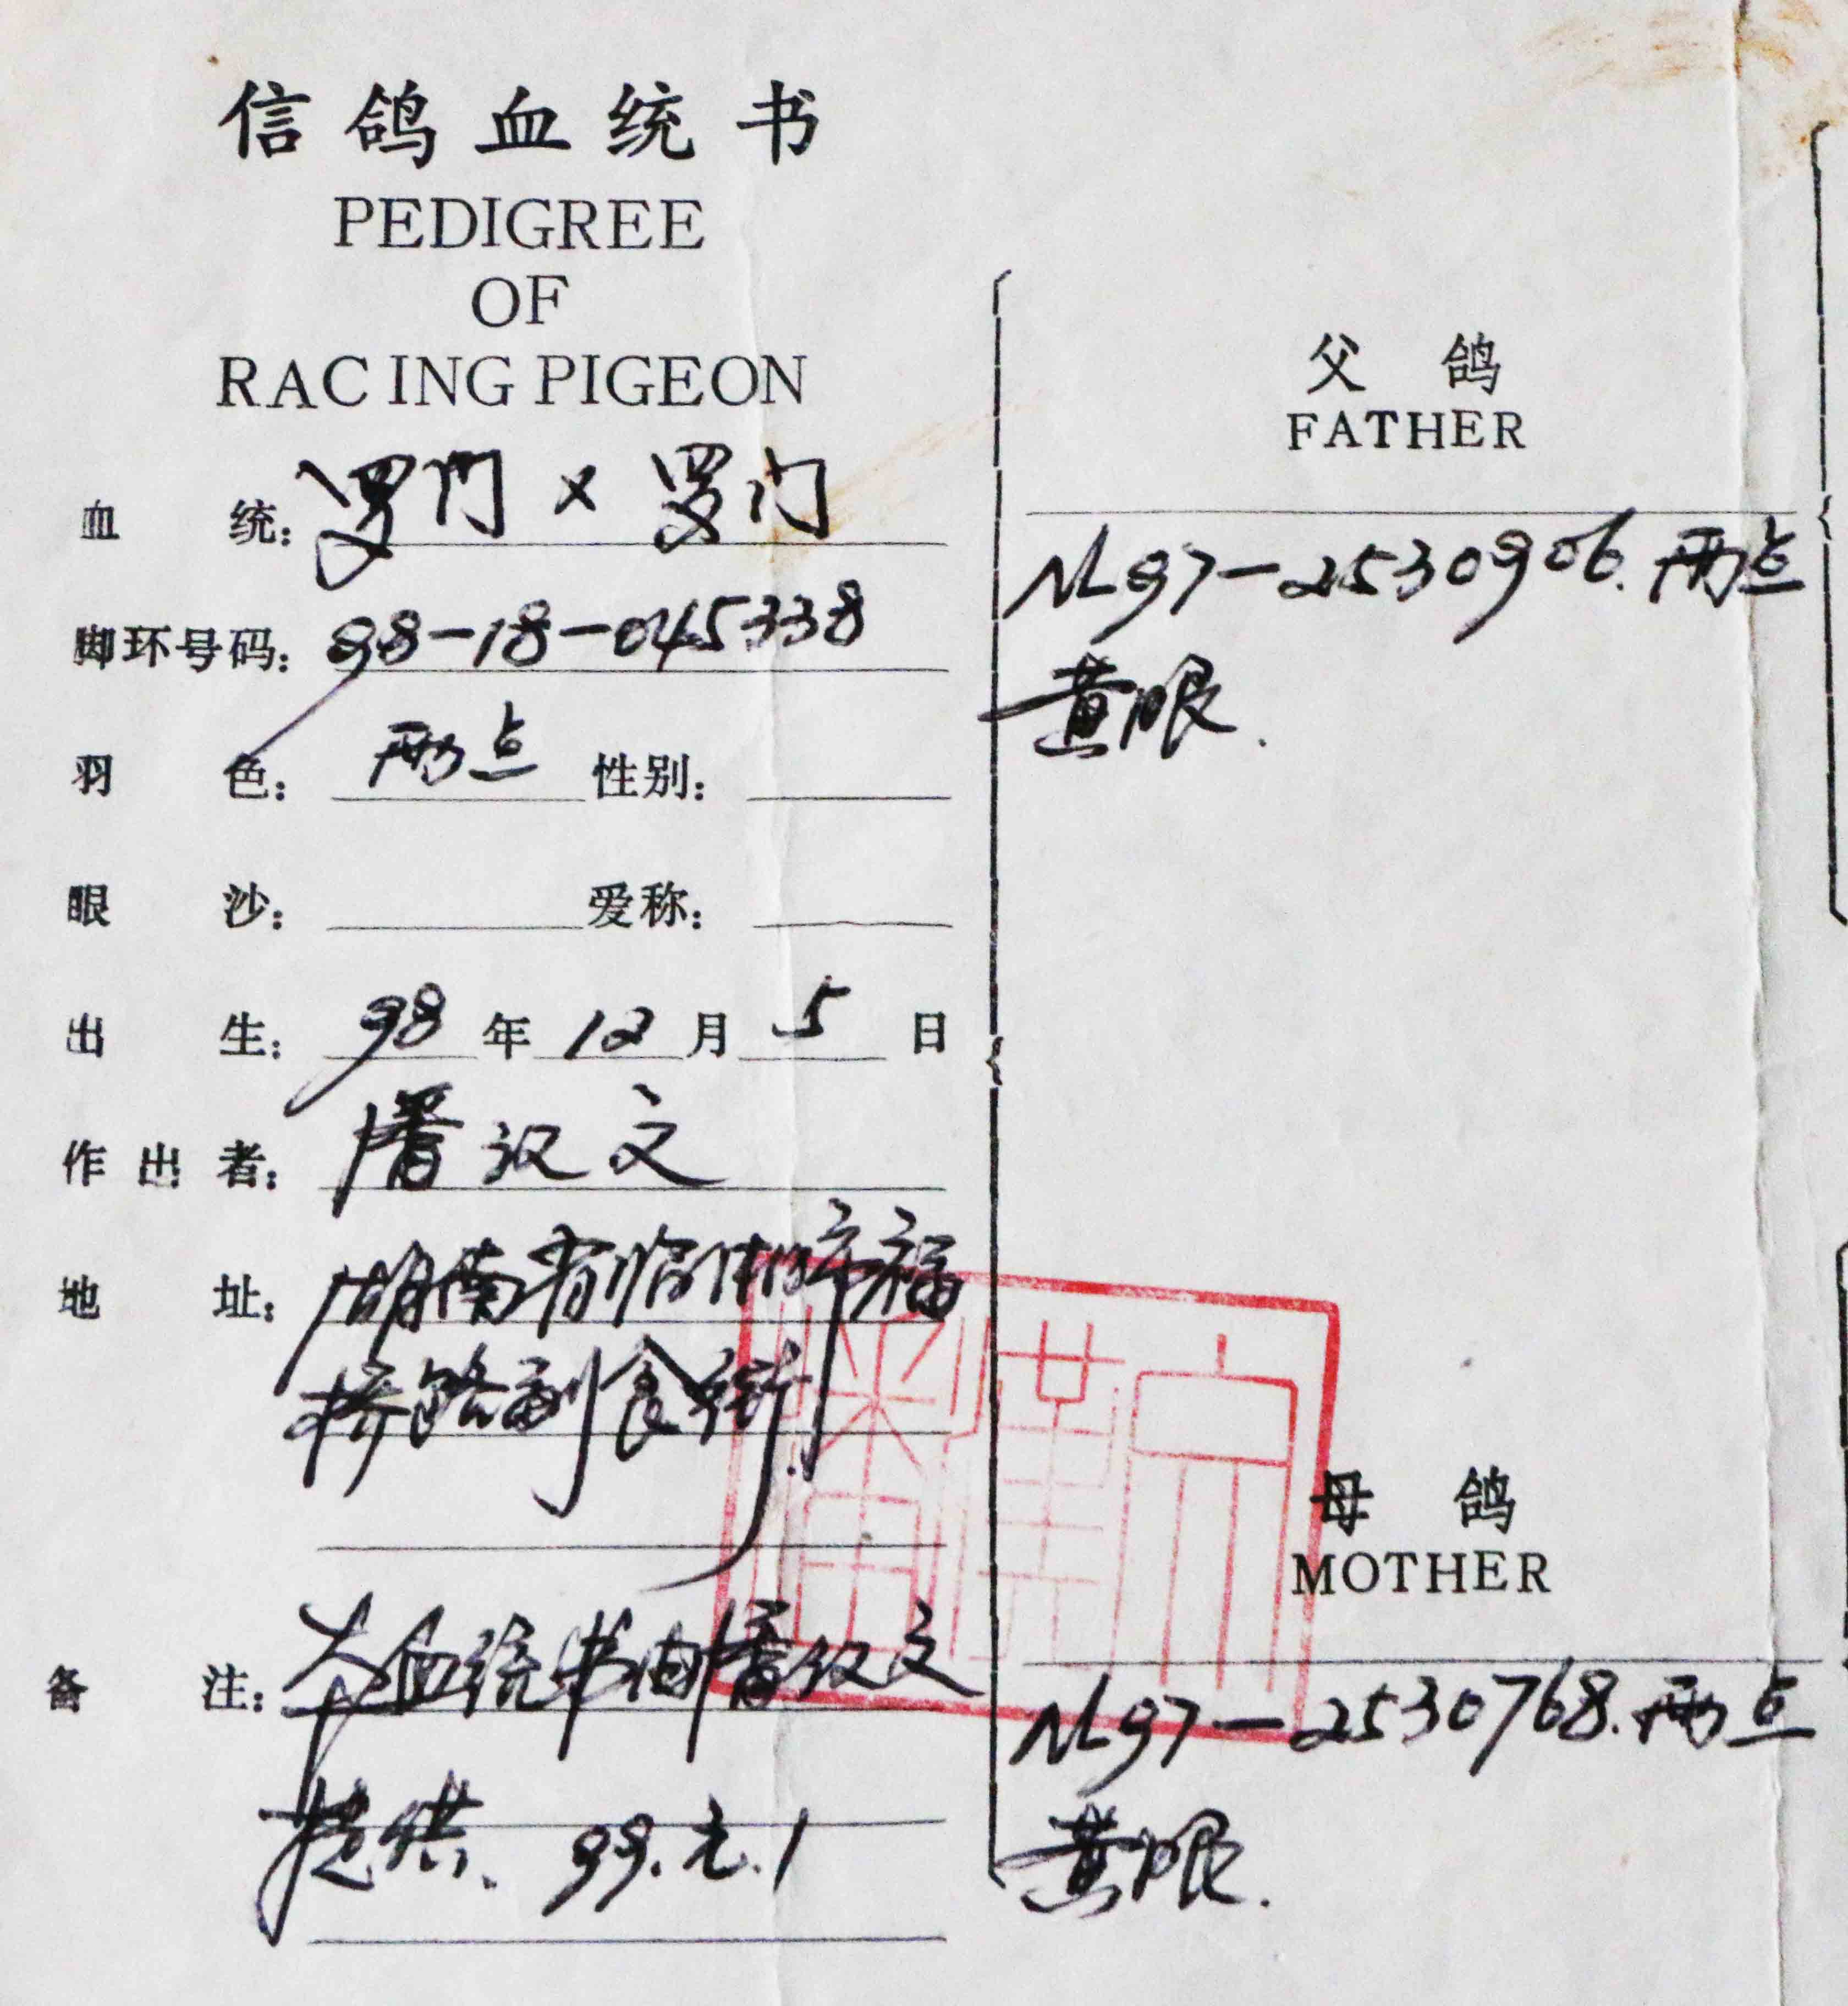 信鸽血统书
PEDIGREE
OF
RACING PIGEON
血统: 罗门 × 罗门
脚环号码: 98-18-045338
羽色: 雨点 性别:
眼沙: 爱称:
出生: 98 年 12 月 5 日
作出者: 潘汉文
地址: 湖南省临湘市福
桥路副食街
备注: 本血统书由潘汉文
提供、99.元.1
父鸽
FATHER
NL97-2530906.雨点
黄眼.
母鸽
MOTHER
NL97-2530768.雨点
黄眼.